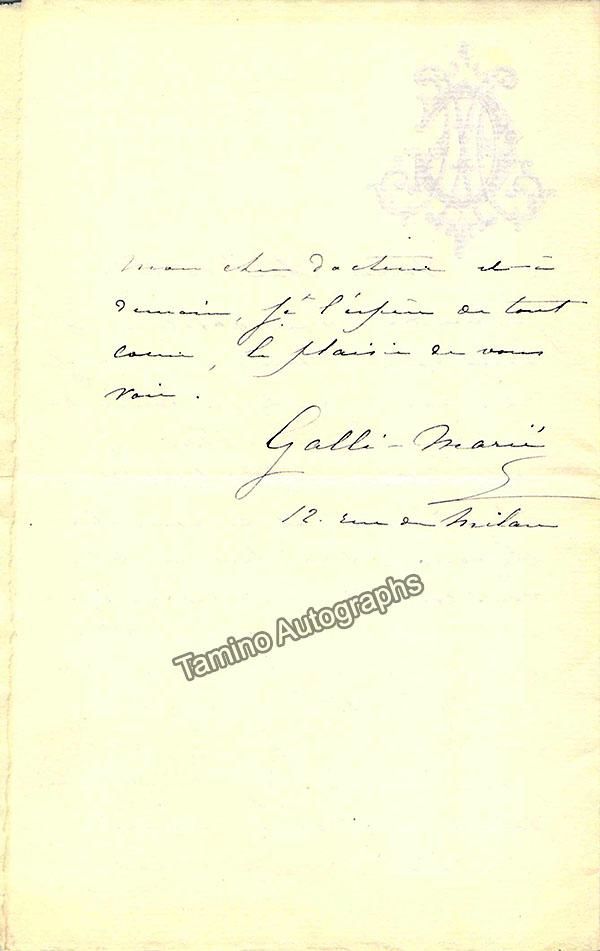 mon cher docteur et à
demain, je l'espère de tout
coeur, le plaisir de vous
voir.
Galli-Marié
12. rue de Milan
Tamino Autographs